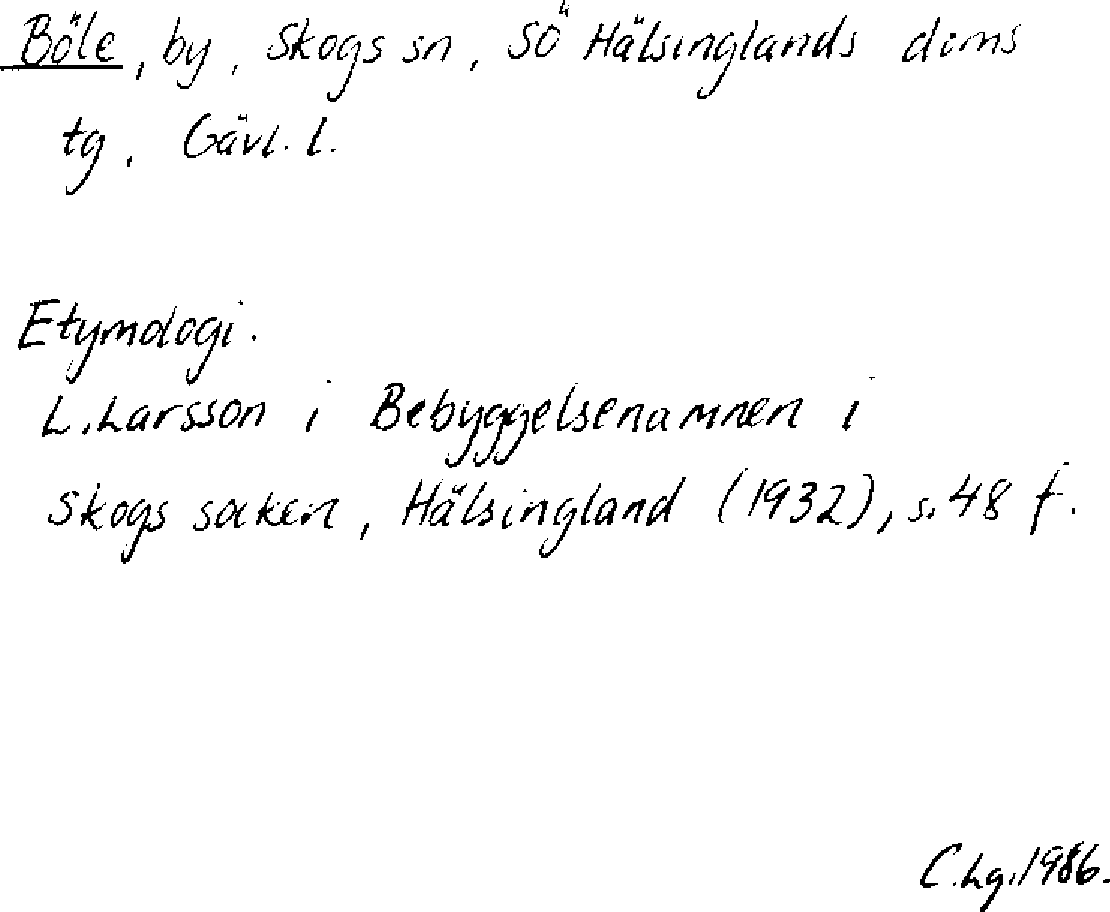 Böle, by, Skogs sn, SÖ Hälsinglands doms
tg, Gävl. l.
Etymologi.
L. Larsson i Bebyggelsenamnen i
Skogs socken, Hälsingland (1932), s. 48 f.
C. Lg. 1986.